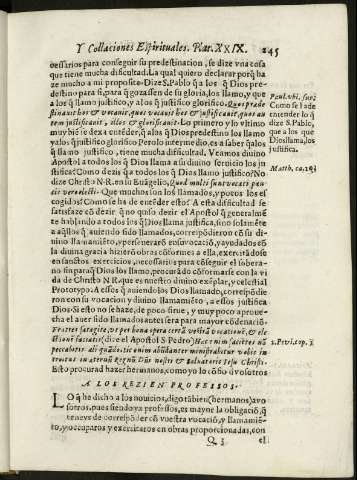 Y Collaciones Espirituales. Plat. XXIX. 245
cessarios para conseguir su predestinacion, se dize vna cosa
que tiene mucha dificultad. La qual quiero declarar porq̃ ha-
ze mucho a mi proposito. Dize S. Pablo q̃ a los q̃ Dios pre-
destino para si, para q̃ gozassen de su gloria, los llamo, y que
a los q̃ llamo justifico, y a los q̃ justifico glorifico. Quos prede-
stinauit hos & vocauit, quos vocauit hos & justificauit, quos au-
tem justificauit, illos & glorificauit. Lo primero y lo vltimo
muy biẽ se dexa entẽder, q̃ a los q̃ Dios predestino los llamo
y a los q̃ justifico glorifico. Pero lo intermedio, es a saber q̃ a los
q̃ llamo justifico, tiene mucha dificultad. Veamos diuino
Apostol a todos los q̃ Dios llama a su diuino seruicio los justi-
fica? Como dezis q̃ a todos los q̃ Dios llama justifica? No
dize Christo N. R. en su Euãgelio, Quod multi sunt vocati pau-
ci vero electi. Que muchos son los llamados, y pocos los es-
cogidos? Como se ha de entẽder esto? A esta dificultad se
satisfaze cõ dezir q̃ no quiso dezir el Apostol q̃ generalmẽ-
te hablando a todos los q̃ Dios llama justifica, sino solamẽte
a aq̃llos q̃ auiendo sido llamados, correspõdieron cõ su di-
uino llamamiẽto, y perseuerarõ en su vocaciõ, y ayudados cõ
la diuina gracia hizierõ obras cõformes a ella, exercitãdose
en sanctos exercicios, necessarios para cõseguir el sobera-
no fin para q̃ Dios los llamo, procurãdo cõformarse con la vi-
da de Christo N. R. que es nuestro diuino exẽplar, y celestial
Prototypo. A estos q̃ auiendolos Dios llamado, correspõdie-
ron con su vocacion y diuino llamamiẽto, a essos justifica
Dios. Si esto no se haze, de poco sirue, y muy poco aproue-
cha el auer sido llamados antes sera para mayor cõdenaciõ.
Fratres satagite, vt per bona opera certã vestrã vocationẽ, & ele-
ctione faciatis (dize el Apostol S. Pedro) Hæc enim faciẽtes nõ
peccabitis aliquãdo: sic enim abũdanter ministrabitur vobis in-
troitus in æternũ regnũ Dñi nostri & saluatoris Iesu Christi.
Esto procurad hazer hermanos, como yo lo cõfio d̃ vosotros
A LOS REZIEN PROFESSOS.
LO q̃ he dicho a los nouicios, digo tãbien (hermanos) a vo-
sotros, pues siendo ya professos, es mayor la obligaciõ, q̃
teneys de correspõder cõ vuestra vocaciõ, y llamamien-
to, y ocuparos y exercitaros en obras proporcionadas, con
Q 3 el
Paul. vbi. supr.
Como se ha de
entender lo q̃
dize S. Pablo,
que a los que
Dios llama, los
justifica.
Matth. ca. 20
2. Petri, cap. 1